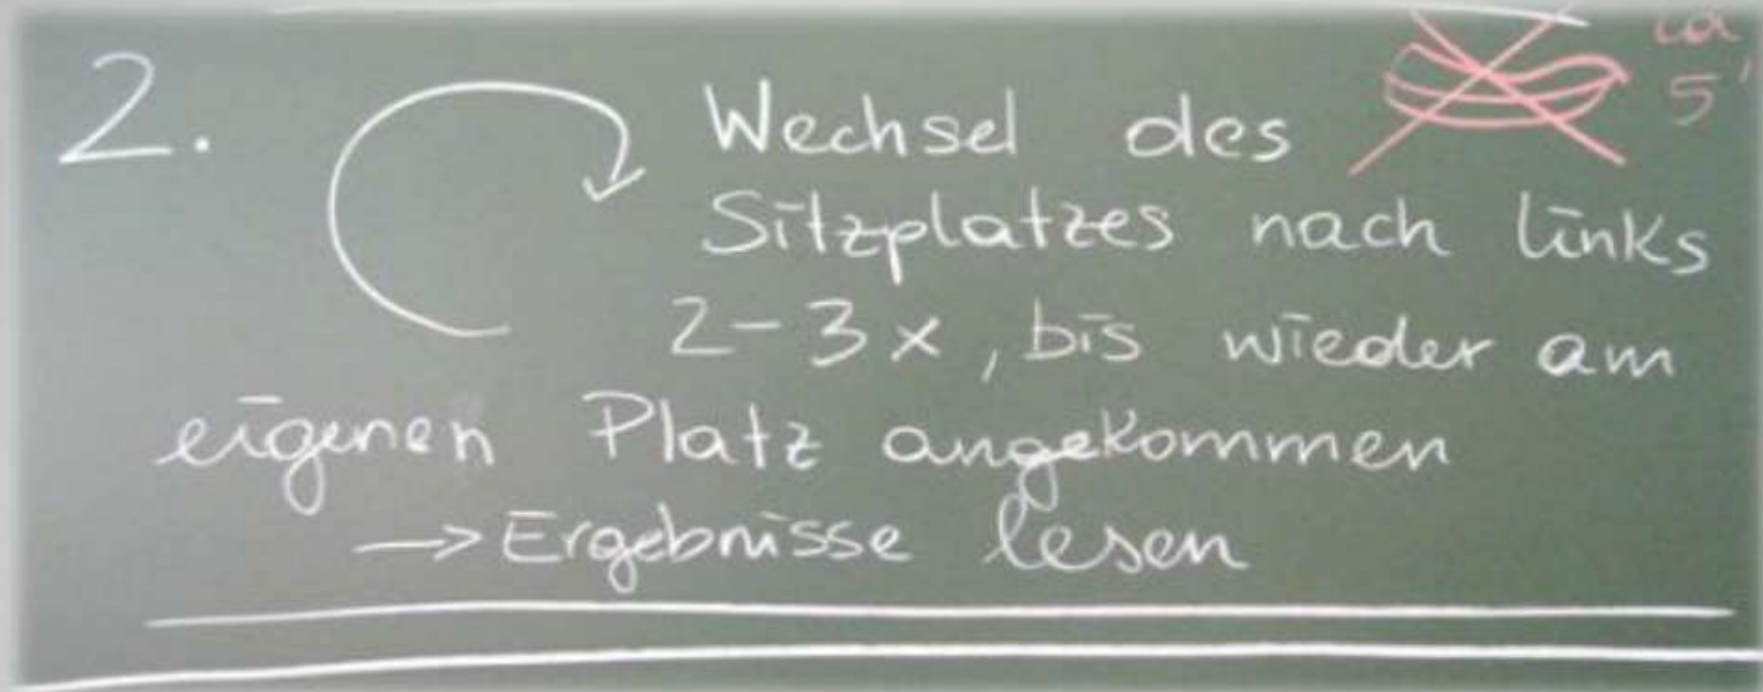 ca
5'
2. Wechsel des
Sitzplatzes nach links
2-3x, bis wieder am
eigenen Platz angekommen
→ Ergebnisse lesen